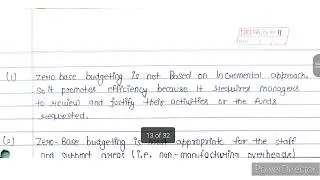 (1) Zero base budgeting is not Based on Incremental approach,
so it promotes efficiency because it requires managers
to review and justify their activities or the funds
requested.
13 of 32
(2) Zero-Base budgeting is most appropriate for the staff
and support areas (i.e, non-manufacturing overheads)
PowerDirector